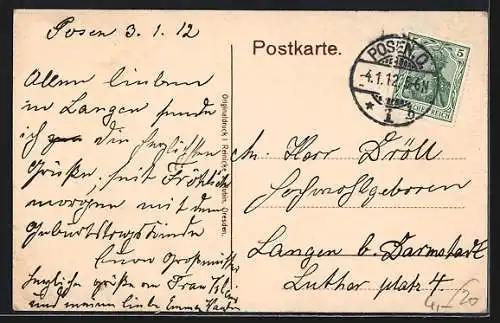 Posen 3.1.12
Allen lieben
in Langen sende
ich die herzlichsten
Grüße, seid Fröhlich
morgen mit dem
Geburtstagskinde
Eure Großmutter
herzliche Grüße an Frau
und meine liebe Emma
Postkarte.
Originaldruck Römmler Jonas, Dresden.
POSEN O.
-4.1.12. 5-6N
* 1 b
5
An Herr Dröll
Hochwohlgeboren
Langen b. Darmstadt
Luther platz 4